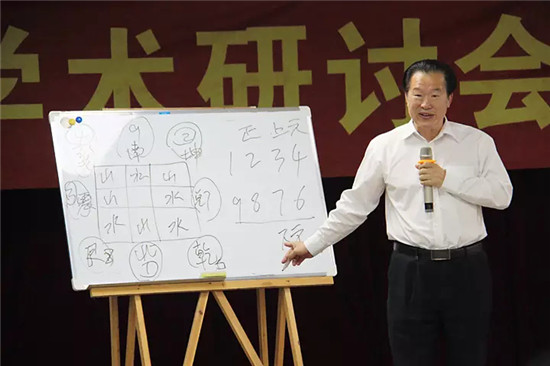 学术研讨会
9
南
坤
山 水 山
3 震 山 水
水 山 水
北
乾
上元
1 2 3 4
9 8 7 6